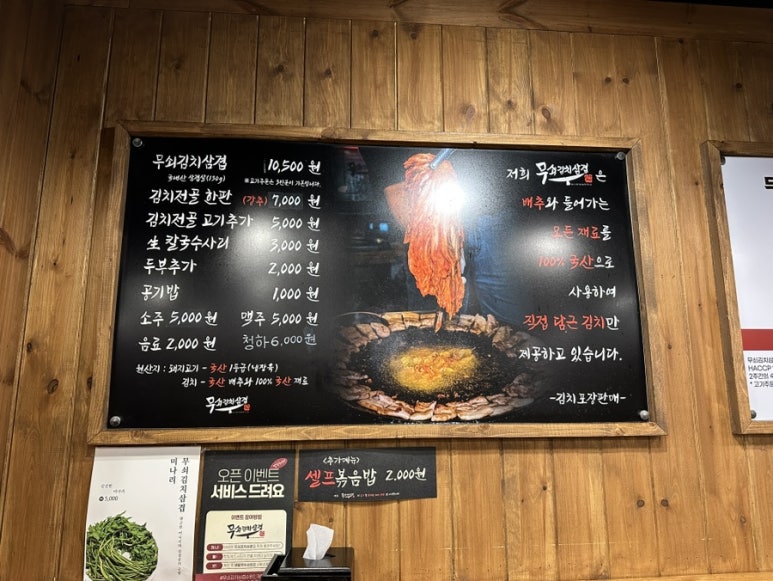 무쇠김치삼겹 10,500 원
국내산 삼겹살(150g) ※고기주문은 3인분이 기본입니다.
김치전골 한판 (각추) 7,000 원
김치전골 고기추가 5,000 원
生 칼국수사리 3,000 원
두부추가 2,000 원
공기밥 1,000 원
소주 5,000 원 맥주 5,000 원
음료 2,000 원 청하 6,000 원
원산지 : 돼지고기 - 국산 1등급(냉장육)
김치 - 국산 배추와 100% 국산 재료
무쇠김치삼겹
저희 무쇠김치삼겹은
배추와 들어가는
모든 재료를
100% 국산으로
사용하여
직접 담근 김치만
제공하고 있습니다.
-김치포장판매-
무쇠김치삼겹
미나리
5,000
오픈 이벤트
서비스 드려요
이벤트 참여방법
무쇠김치삼겹
<추가메뉴>
셀프볶음밥 2,000원
HACCP